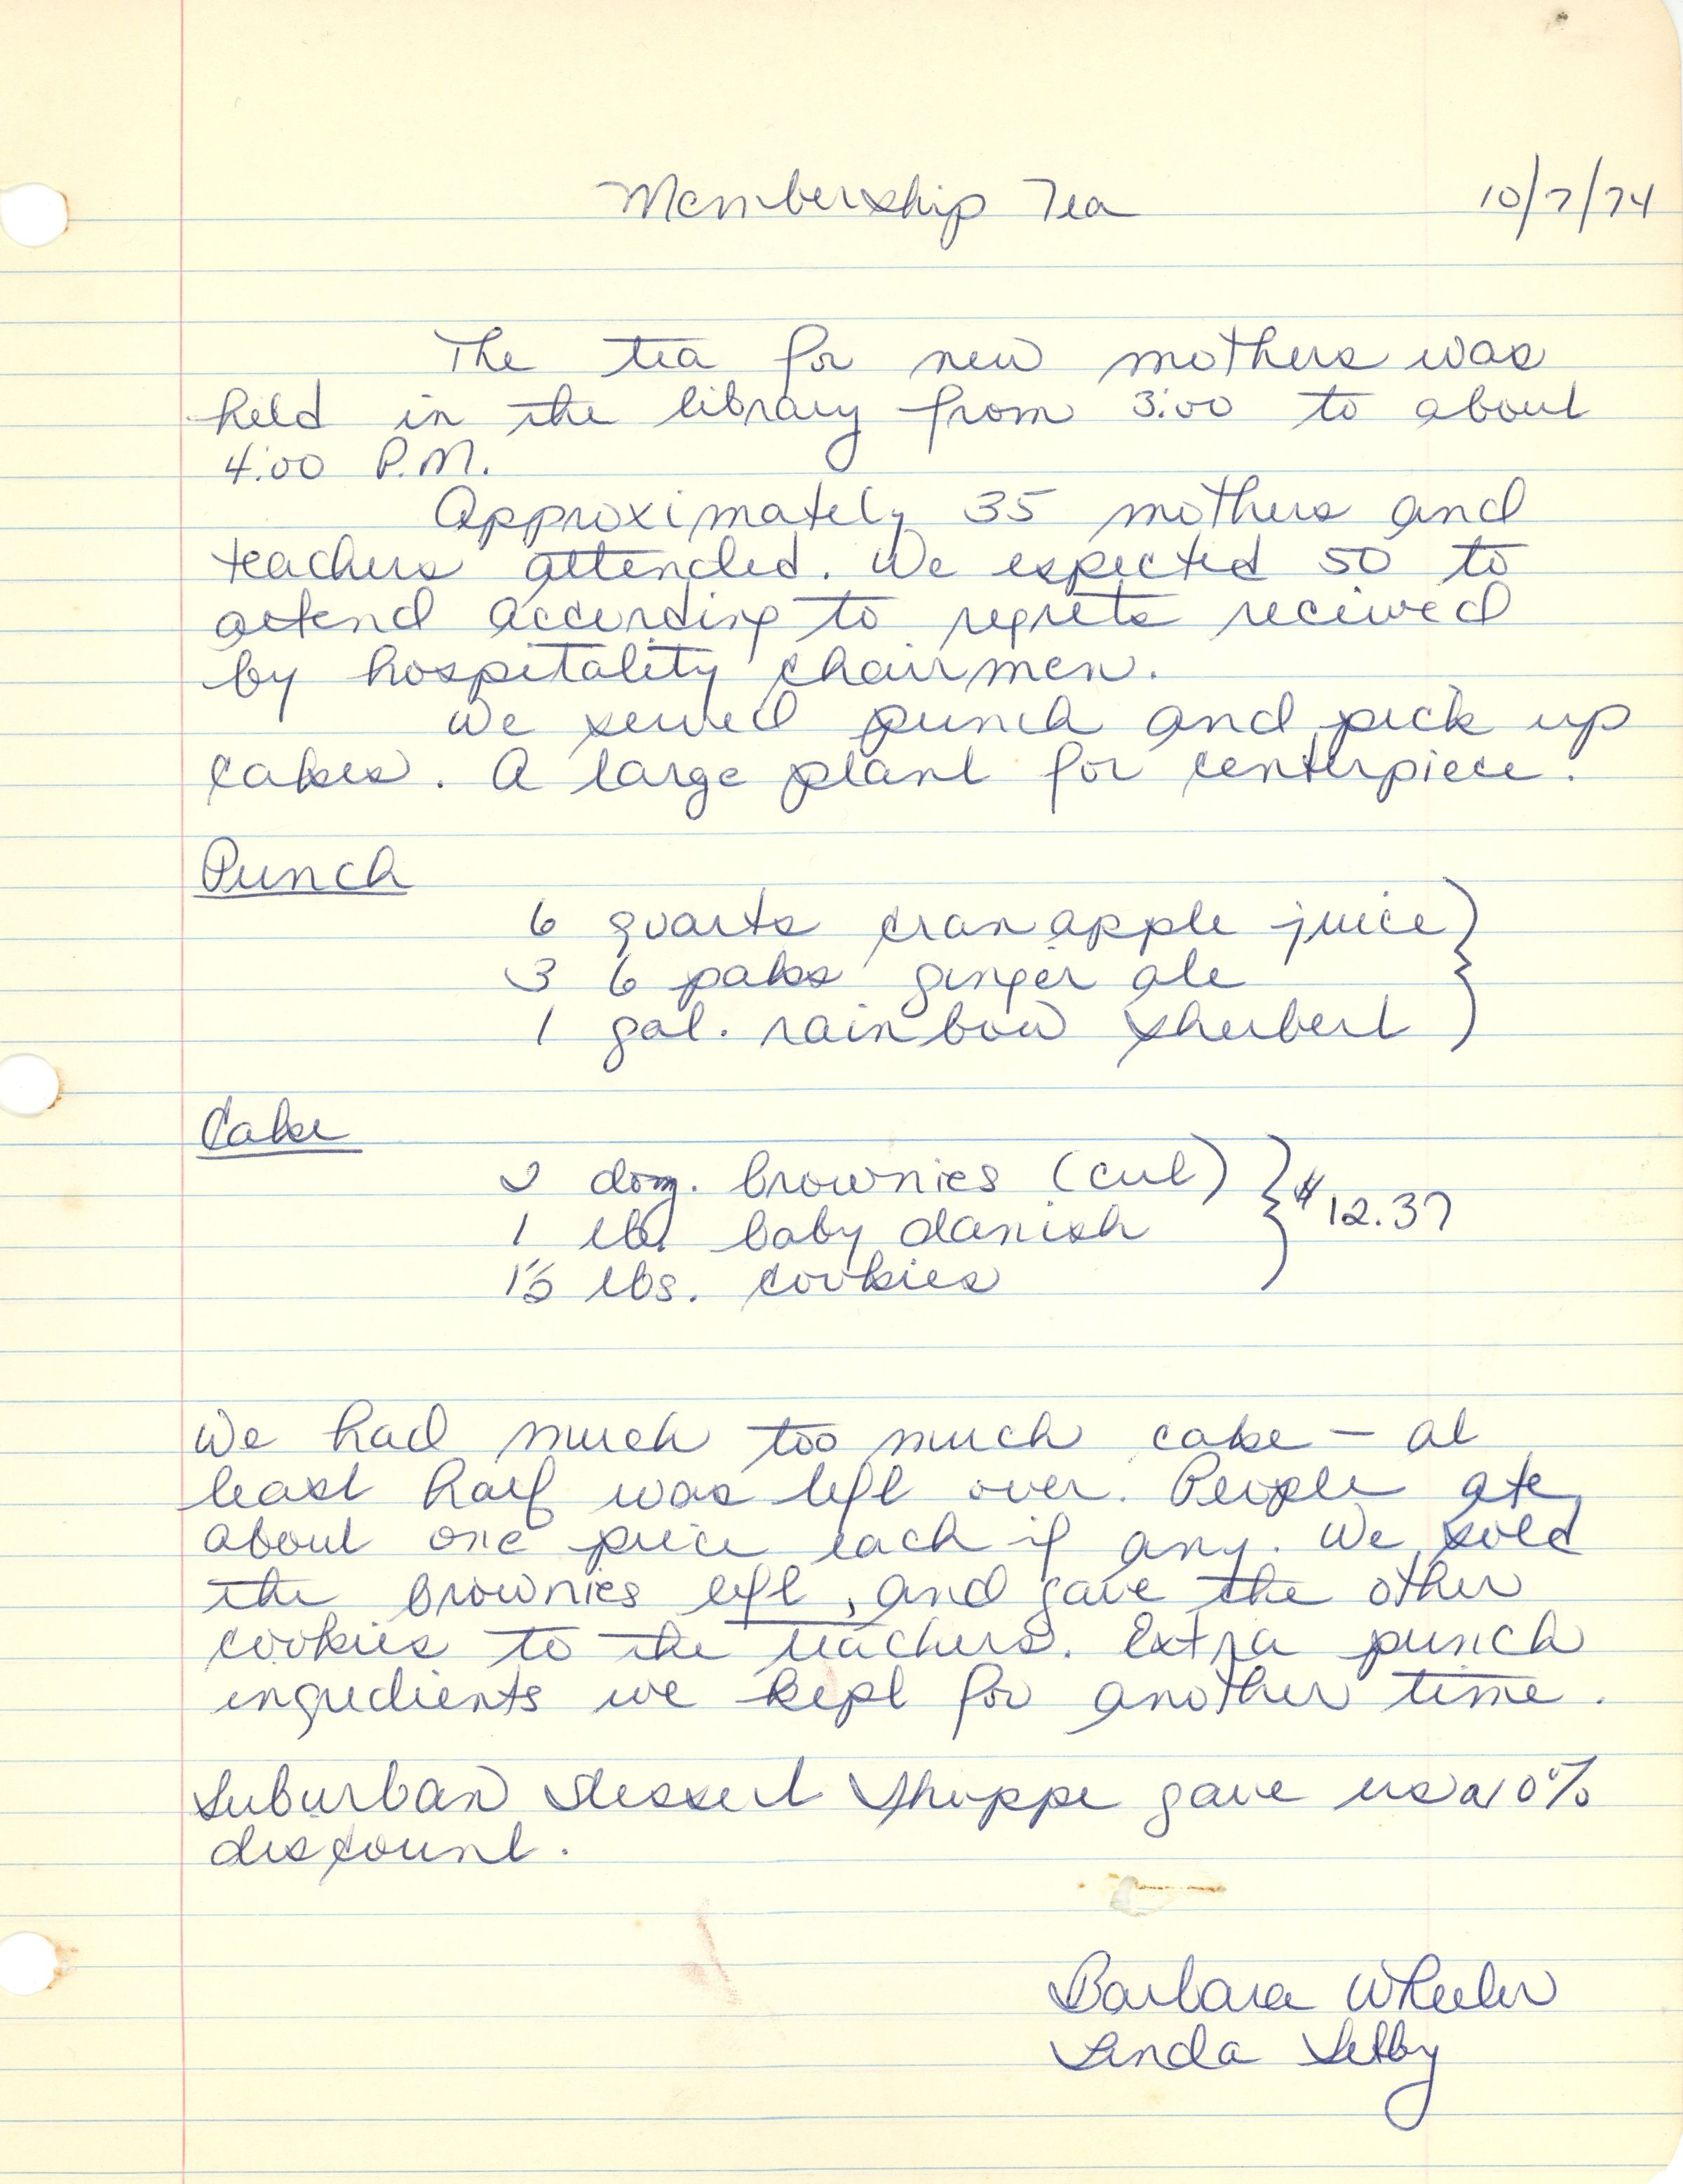 Membership Tea
10/7/74
The tea for new mothers was
held in the library from 3:00 to about
4:00 P.M.
Approximately 35 mothers and
teachers attended. We expected 50 to
attend according to regrets received
by hospitality chairmen.
We served punch and pick up
cakes. A large plant for centerpiece.
Punch
6 quarts cranapple juice
3 6 paks ginger ale
1 gal. rainbow sherbert
Cake
2 doz. brownies (cut)
1 lb. baby danish
$12.37
1½ lbs. cookies
We had much too much cake – at
least half was left over. People ate
about one piece each if any. We sold
the brownies left, and gave the other
cookies to the teachers. Extra punch
ingredients we kept for another time.
Suburban Dessert Shoppe gave us a 10%
discount.
Barbara Wheeler
Linda